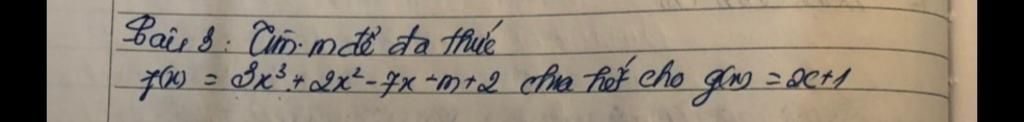 Bài 3: Tìm m để đa thức
f(x) = 3x³ + 2x² - 7x - m + 2 chia hết cho g(x) = x + 1